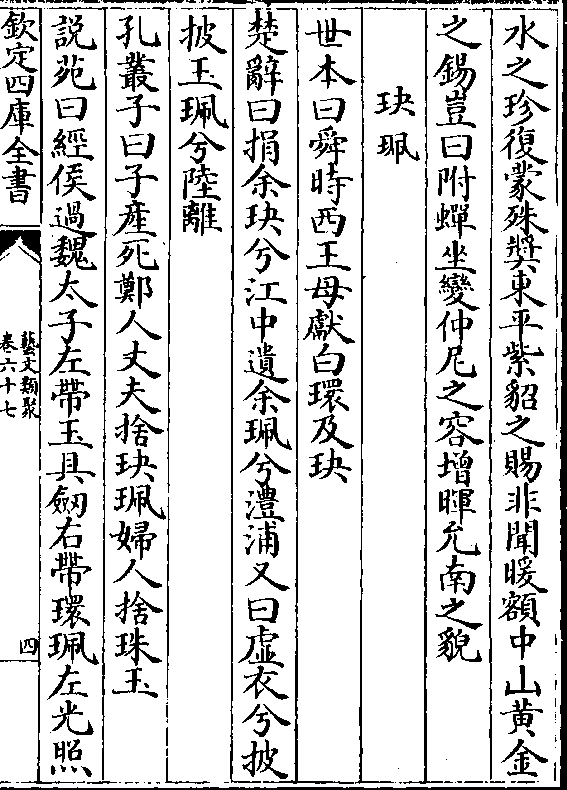 水之珍復蒙殊奬東平紫貂之賜非聞暖額中山黄金
之錫豈曰附蟬坐變仲尼之容增暉允南之貌
玦珮
世本曰舜時西王母獻白環及玦
楚辭曰捐余玦兮江中遺余珮兮澧浦又曰虛衣兮披
披玉珮兮陸離
孔叢子曰子産死鄭人丈夫捨玦珮婦人捨珠玉
說苑曰經侯過魏太子左帶玉具劒右帶環珮左光照
欽定四庫全書
藝文類聚
卷六十七
四